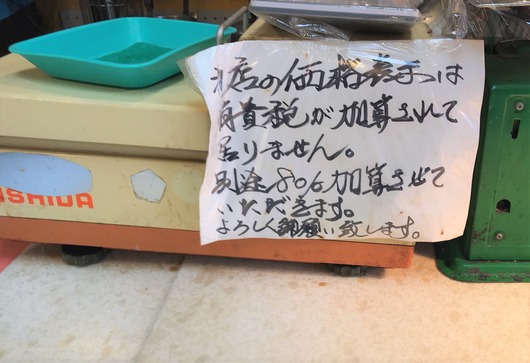 当店の価格表示は
消費税が加算されて
居りません。
別途8%加算させて
いただきます。
よろしく御願い致します。
ISHIDA